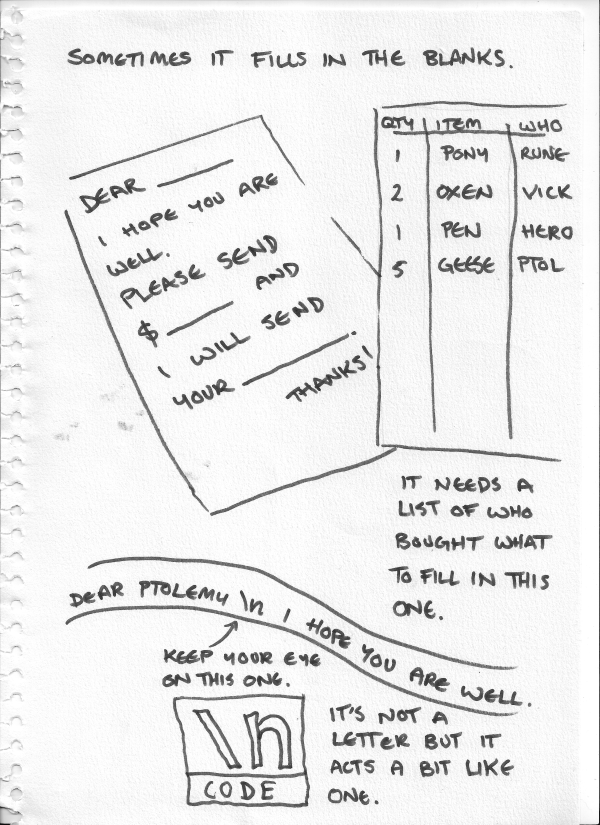 SOMETIMES IT FILLS IN THE BLANKS.
DEAR ______
I HOPE YOU ARE
WELL.
PLEASE SEND
$ ______ AND
I WILL SEND
YOUR ______.
THANKS!
QTY ITEM WHO
1 PONY RUNE
2 OXEN VICK
1 PEN HERO
5 GEESE PTOL
IT NEEDS A
LIST OF WHO
BOUGHT WHAT
TO FILL IN THIS
ONE.
DEAR PTOLEMY \n I HOPE YOU ARE WELL.
KEEP YOUR EYE
ON THIS ONE.
\n
CODE
IT'S NOT A
LETTER BUT IT
ACTS A BIT LIKE
ONE.